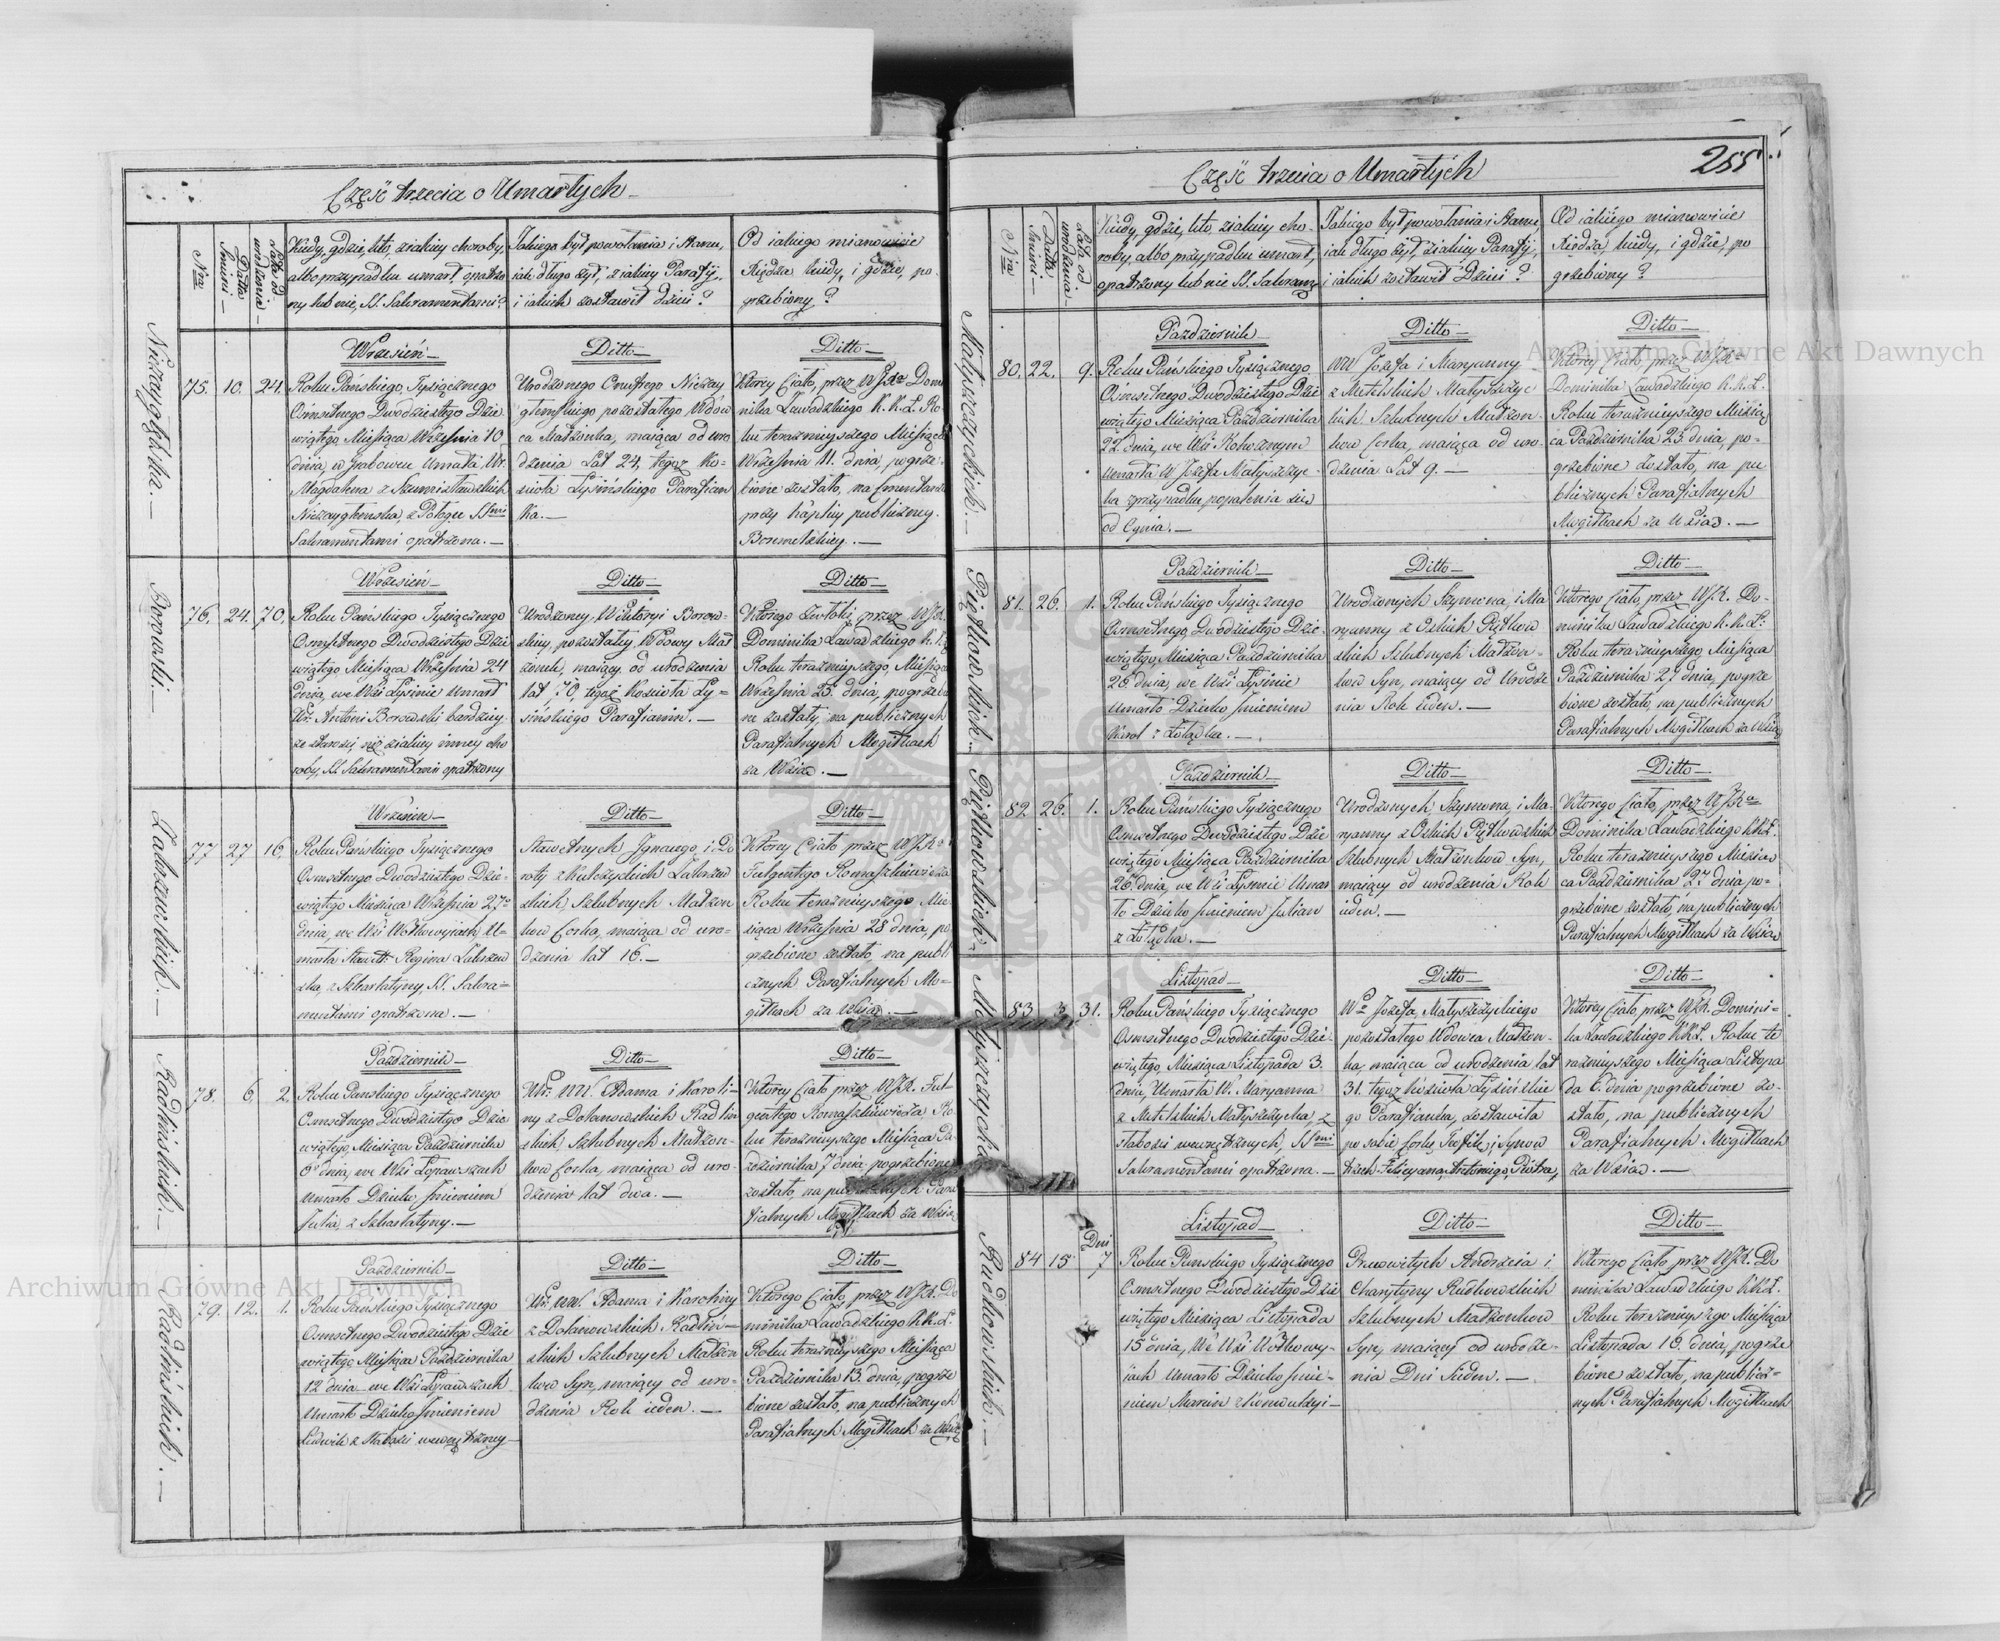 Część trzecia o Umarłych
Nro
Datta Śmierci
Lata od urodzenia
Kiedy, gdzie, kto, z iakiey choroby,
albo przypadku umarł, opatrzo
ny lub nie, SS. Sakramentami?
Iakiego był powołania i Stanu,
iak długo żył, z iakiey Parafij,
i iakich zostawił dzieci?
Od iakiego mianowicie
Xiędza, kiedy, i gdzie, po-
grzebiony?
75. 10. 24.
Wrzesień
Roku Pańskiego, Tysiącznego
Ośmsetnego Dwódziestego Dzie
wiątego, Miesiąca Września 10
dnia, w Grabowcu Umarła Ur.
Magdalena z Szumisławskich
z Pologu SSmi
Sakramentami opatrzona.
Ditto
Urodzonego Onufrego
pozostałego Wdow
ca Małżonka, maiąca od uro
dzenia Lat 24, tegoż Ko-
scioła Łysińskiego Parafian
ka.
Ditto
Ktorey Ciało, przez WJXa Domi
nika Zawadzkiego K.K.Ł. Ro
ku teraznieyszego Miesiąca
Września 11. dnia, pogrze-
bione zostało, na Cmentarzu
przy kaplicy publiczney.
Boremelskiey.
Borowski.
76. 24. 70.
Wrzesień
Roku Pańskiego Tysiącznego
Osmsetnego Dwódziestego Dzie
wiątego Miesiąca Września 24
dnia, we Wsi Łysinie Umarł
Ur. Antoni Borowski bardziey
ze starosci niż z iakiey inney cho
roby, SS. Sakramentami opatrzony
Ditto
Urodzoney, Wiktoryi Borow-
skiey, pozostałey Wdowy Mał
żonek, maiący od urodzenia
lat 70, tegoż Kościoła Ły-
sińskiego Parafianin.
Ditto
Ktorego Zwłoki, przez WJX.
Dominika Zawadzkiego K.K.Ł
Roku teraznieyszego, Miesiąca
Września 25. dnia, pogrzebio
ne zostały, na publicznych
Parafialnych Mogiłkach
za Wsią.
77 27 16.
Wrzesień
Roku Pańskiego Tysiącznego
Osmsetnego Dwodziestego Dzie-
wiątego Miesiąca Września 27o
dnia, we Wsi Wołkowyiach, U-
marła Sławett: Regina
z Szkarlatyny, SS. Sakra-
mentami opatrzona.
Ditto
Sławetnych Ignacego, i Do
roty z
Szlubnych Małżon
kow Corka, maiąca od uro-
dzenia lat 16.
Ditto
Ktorey Ciało przez WJX
Fulgentego Romaszkiewicza
Roku teraznieyszego Mie
siąca Września 28 dnia, po
grzebione zostało, na publi
cznych Parafialnych Mo-
giłkach za Wsią.
Radlińskich.
78. 6. 2.
Październik
Roku Panskiego Tysiącznego
Osmsetnego Dwodziestego Dzie
wiątego, Miesiąca Października
6o dnia, we Wsi Łopawszach
umarło Dziecko, Imieniem
Julia, z Szkarlatyny.
Ditto
WW. Adama i Karoli-
ny z Dolanowskich Radliń
skich, Szlubnych Małżon-
kow Corka, maiąca od uro-
dzenia lat dwa.
Ditto
Ktorey Ciało przez WJX. Ful
gentego Romaszkiewicza Ro
ku teraznieyszego Miesiąca Pa
zdziernika 7 dnia, pogrzebione
zostało, na publicznych Para
fialnych Mogiłkach za Wsią.
Radlińskich.
79. 12. 1.
Październik
Roku Pańskiego Tysiącznego
Osmsetnego Dwodziestego Dzie
wiątego, Miesiąca Października
12 dnia we Wsi Łopawszach
Umarło Dziecko Imieniem
Ludwik z słabości wewnętrzney
Ditto
WW. Adama i Karoliny
z Dolanowskich Radliń-
skich Szlubnych Małżon
kow Syn, maiący od uro-
dzenia Rok ieden.
Ditto
Ktorego Ciało, przez WJX. Do
minika Zawadzkiego K.K.Ł.
Roku teraznieyszego Miesiąca
Października 13. dnia, pogrze
bione zostało, na publicznych
Parafialnych Mogiłkach za Wsią
255
Część trzecia o Umarłych
Nro
Datta Śmierci
Lata od urodzenia
Kiedy, gdzie, kto z iakiey cho-
roby, albo przypadku umarł,
opatrzony lub nie SS. Sakram:
Iakiego był powołania i Stanu,
iak długo żył, z iakiey Parafij,
i iakich zostawił Dzieci?
Od iakiego mianowicie
Xiędza, kiedy, i gdzie, po
grzebiony?
Matyszczyckich.
80. 22. 9.
Październik
Roku Pańskiego Tysiącznego
Ośmsetnego Dwodziestego Dzie
wiątego Miesiąca Października
22. dnia, we Wsi Kołozynym
umarła W Jozefa Matyszczyc-
ka z przypadku popalenia się
od Ognia.
Ditto
WW Jozefa i Maryanny
z Matyszczyc
kich Szlubnych Małżon-
kow Corka, maiąca od uro-
dzenia Lat 9.
Ditto
Ktorey Ciało przez WJXa
Dominika Zawadzkiego K.K.Ł.
Roku teraznieyszego Miesią
ca Października 23 dnia, po-
grzebione zostało, na pu
blicznych Parafialnych
Mogiłkach za Wsią.
Piętkowskich.
81. 26. 1.
Październik
Roku Pańskiego Tysiącznego
Osmsetnego, Dwodziestego Dzie-
wiątego, Miesiąca Października
26. dnia, we Wsi Łysinie
Umarło Dziecko Imieniem
Karol z Żołądka.
Ditto
Urodzonych Szymona, i Ma
ryanny z Piętkow
skich Szlubnych Małżon-
kow Syn, maiący od Urodze
nia Rok ieden.
Ditto
Ktorego Ciało, przez WJX. Do-
minika Zawadzkiego K.K.Ł.
Roku teraznieyszego, Miesiąca
Października 27 dnia, pogrze
bione zostało, na publicznych
Parafialnych Mogiłkach za Wsią
Piętkowskich.
82 26. 1.
Październik
Roku Pańskiego Tysiącznego
Osmsetnego Dwodziestego Dzie
wiątego Miesiąca Października
26 dnia, we Wsi Łysinie Umar
ło Dziecko Imieniem Julian
z Żołądka.
Ditto
Urodzonych Szymona, i Ma-
ryanny z Piętkowskich
Szlubnych Małżonkow Syn,
maiący od urodzenia Rok
ieden.
Ditto
Ktorego Ciało, przez WJXa
Dominika Zawadzkiego K.K.Ł.
Roku teraznieyszego Miesią
ca Października 27 dnia po-
grzebione zostało, na publicznych
Parafialnych Mogiłkach za Wsią
Matyszczycka
83 3 31.
Listopad
Roku Pańskiego Tysiącznego
Osmsetnego Dwodziestego Dzie-
wiątego, Miesiąca Listopada 3.
dnia, Umarła W. Maryanna
z Matyszczycka, z
słabości wewnętrznych, SSmi
Sakramentami opatrzona.
Ditto
Wo Jozefa, Matyszczyckiego
pozostałego Wdowca Małżon-
ka, maiąca od urodzenia lat
31. tegoż Kościoła Łysińskie
go Parafianka, zostawiła
po sobie Corkę Teofilę, i Synow
trzech Felicyana, Antoniego, Piotra,
Ditto
Ktorey Ciało, przez WJX. Domini-
ka Zawadzkiego K.K.Ł. Roku te
raznieyszego Miesiąca Listopa
da 6. dnia pogrzebione zo-
stało, na publicznych
Parafialnych Mogiłkach
za Wsią.
Rudkowskich.
84 15 Dni 7
Listopad
Roku Panskiego Tysiącznego
Osmsetnego Dwodziestego Dzie
wiątego Miesiąca Listopada
15 dnia, We Wsi Wołkowy-
iach Umarło Dziecko Imie-
niem Marcin z Konwulsyi
Ditto
Pracowitych Andrzeia i
Charytyny Rudkowskich
Szlubnych Małżonkow
Syn, maiący od urodze-
nia Dni Siedm.
Ditto
Ktorego Ciało przez WJX. Do
minika Zawadzkiego K.K.Ł.
Roku teraznieyszego Miesiąca
Listopada 16 dnia, pogrze
bione zostało, na publicz-
nych Parafialnych Mogiłkach
Archiwum Główne Akt Dawnych
Archiwum Główne Akt Dawnych